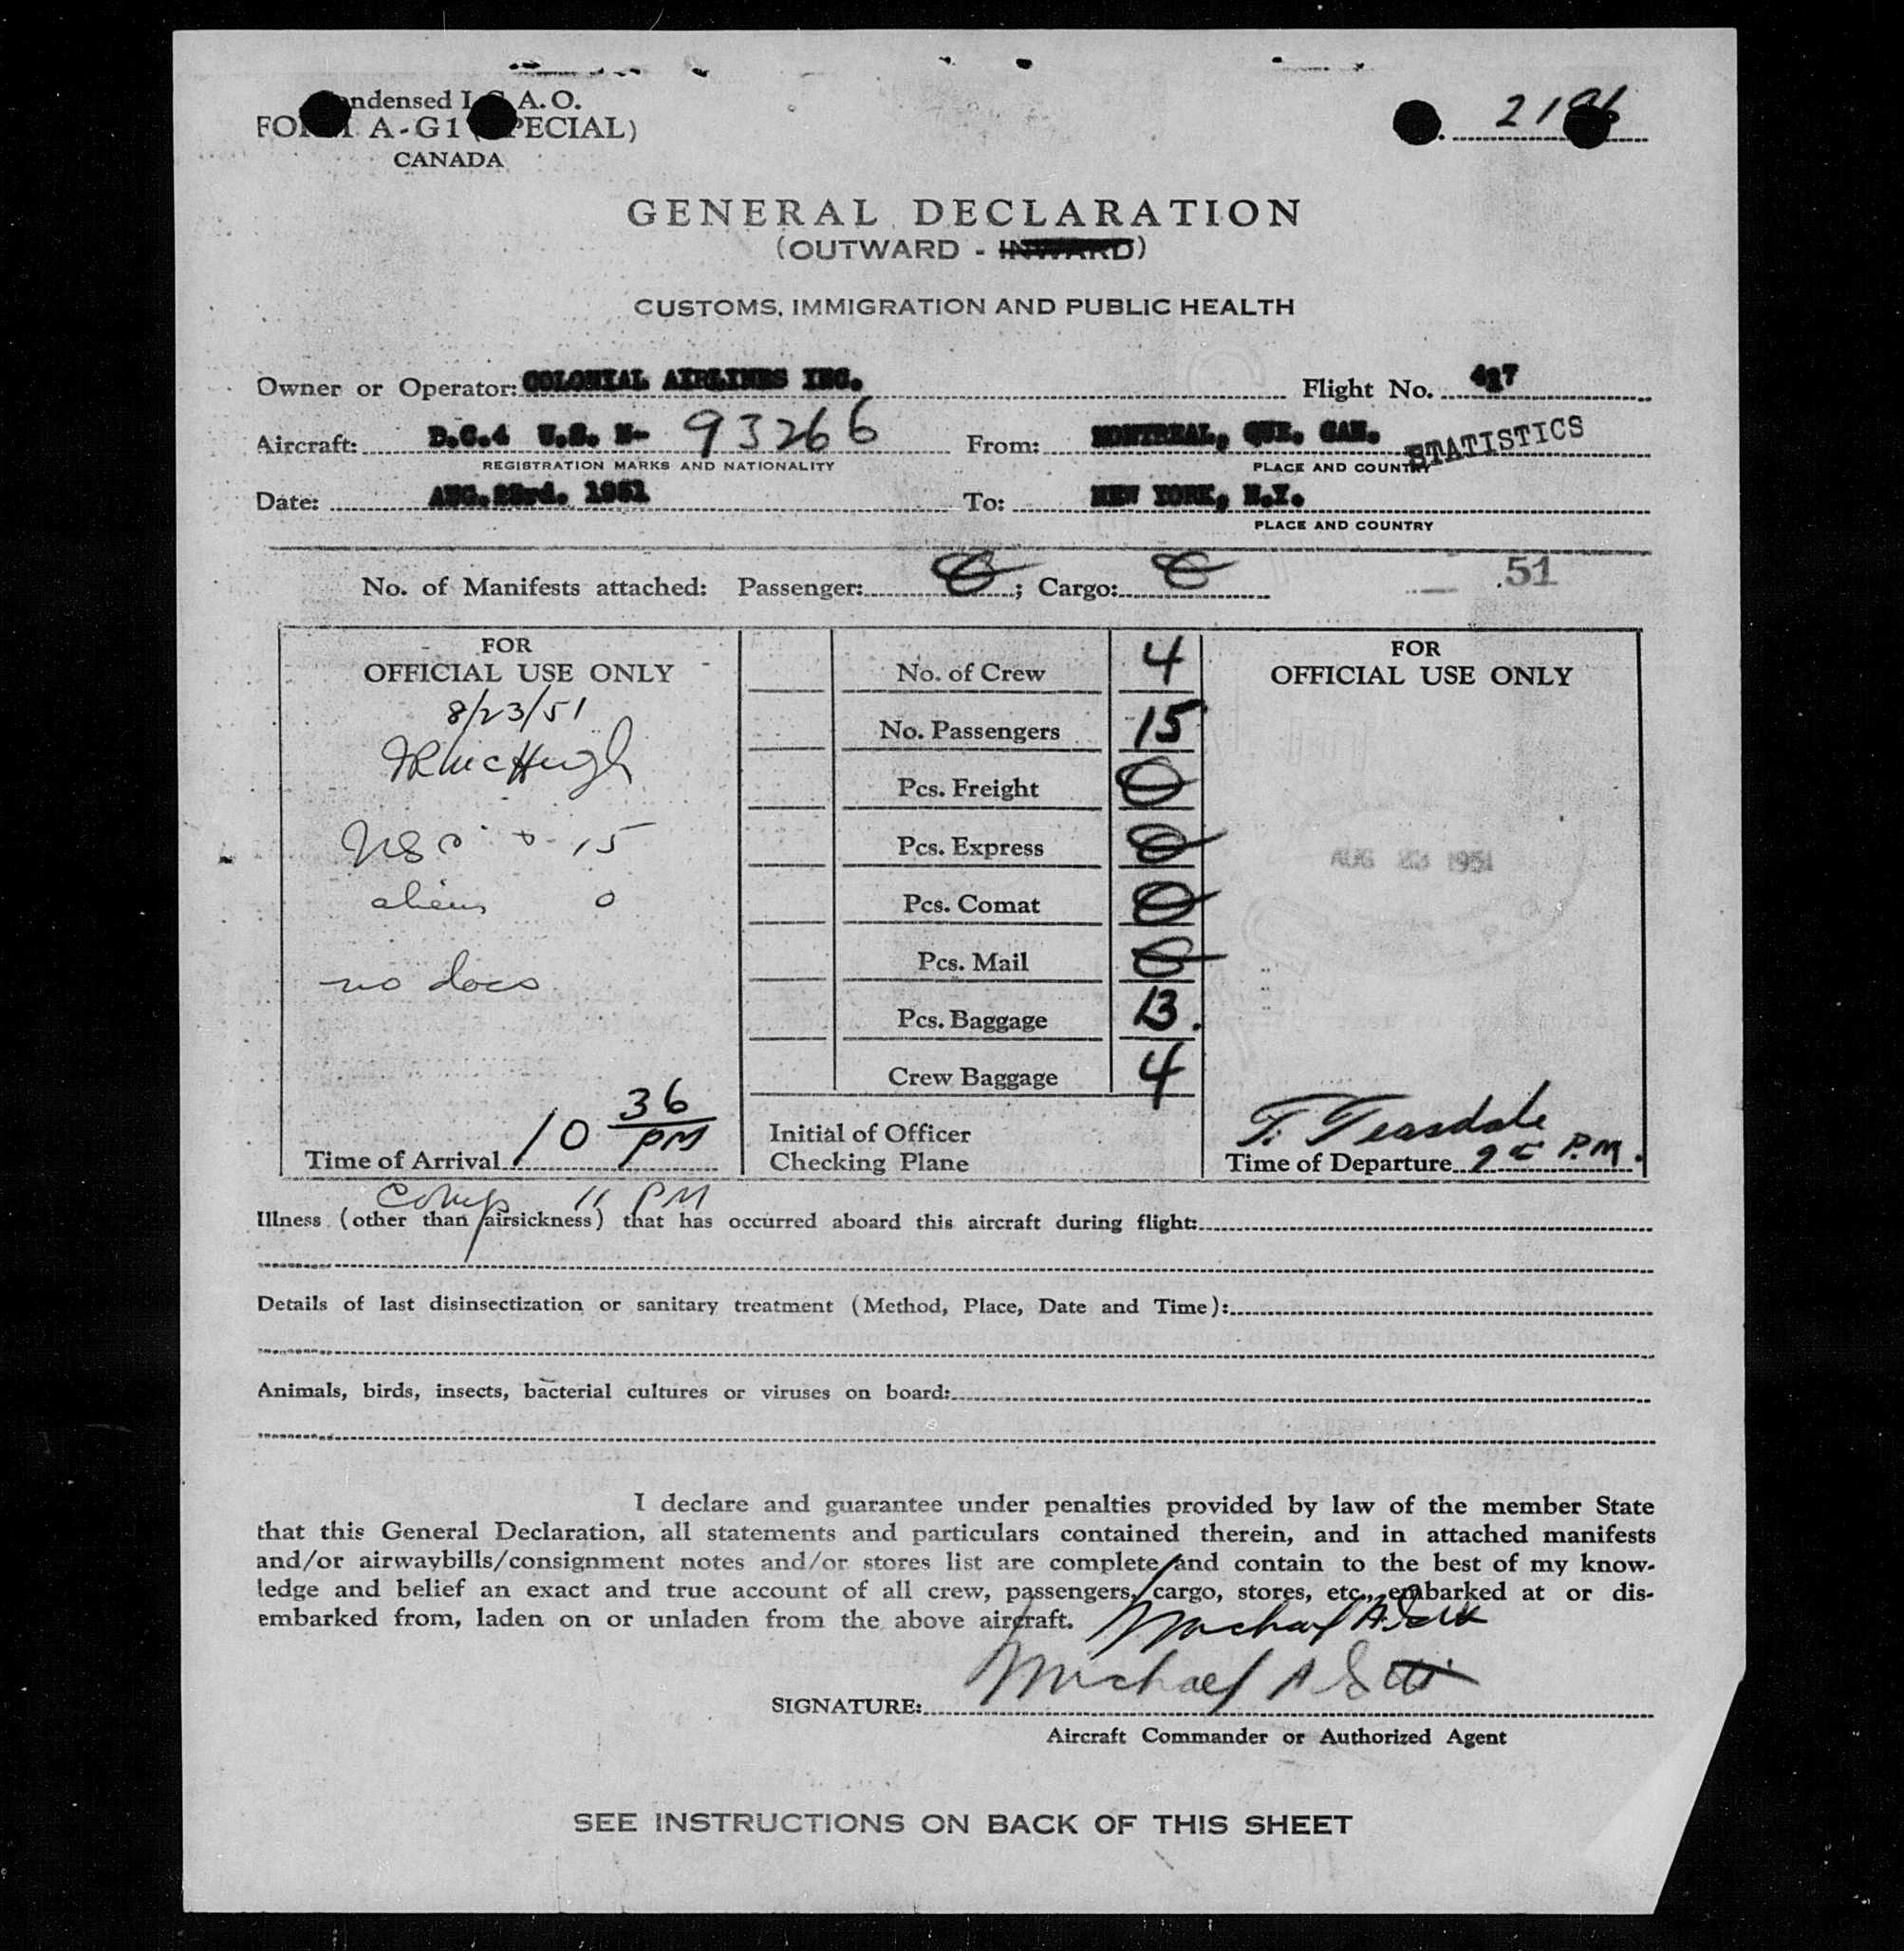 Condensed I.C.A.O.
FORM A-G1 (SPECIAL)
CANADA
GENERAL DECLARATION
(OUTWARD - INWARD)
CUSTOMS, IMMIGRATION AND PUBLIC HEALTH
Owner or Operator: COLONIAL AIRLINES INC. Flight No.
Aircraft: D.C.4 U.S. N- 93266 From: MONTREAL, QUE. CAN. STATISTICS
REGISTRATION MARKS AND NATIONALITY PLACE AND COUNTRY
Date: AUG.23rd. 1951 To: NEW YORK, N.Y.
PLACE AND COUNTRY
No. of Manifests attached: Passenger: 0; Cargo: 0 51
FOR
OFFICIAL USE ONLY
8/23/51
USC 15
aliens 0
no docs
Time of Arrival 10 36 PM
Comp 11 PM
No. of Crew 4
No. Passengers 15
Pcs. Freight 0
Pcs. Express 0
Pcs. Comat 0
Pcs. Mail 0
Pcs. Baggage 13
Crew Baggage 4
Initial of Officer
Checking Plane
FOR
OFFICIAL USE ONLY
AUG 23 1951
T. Teasdale
Time of Departure P.M.
Illness (other than airsickness) that has occurred aboard this aircraft during flight:
Details of last disinsectization or sanitary treatment (Method, Place, Date and Time):
Animals, birds, insects, bacterial cultures or viruses on board:
I declare and guarantee under penalties provided by law of the member State
that this General Declaration, all statements and particulars contained therein, and in attached manifests
and/or airwaybills/consignment notes and/or stores list are complete and contain to the best of my know-
ledge and belief an exact and true account of all crew, passengers, cargo, stores, etc., embarked at or dis-
embarked from, laden on or unladen from the above aircraft. Michael A.
SIGNATURE: Michael A
Aircraft Commander or Authorized Agent
SEE INSTRUCTIONS ON BACK OF THIS SHEET